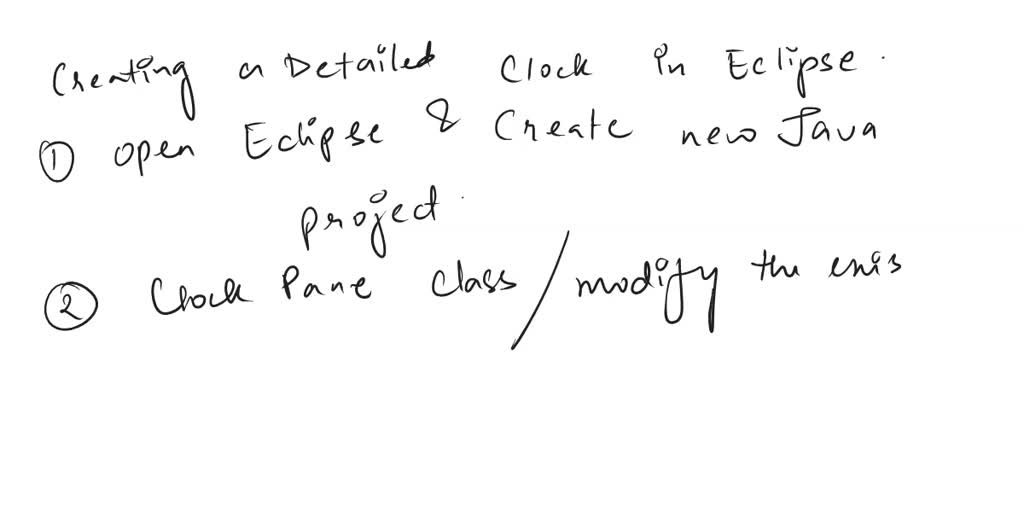 Creating a Detailed Clock in Eclipse.
① open Eclipse & Create new Java
project.
② Clock Pane class / modify the exis